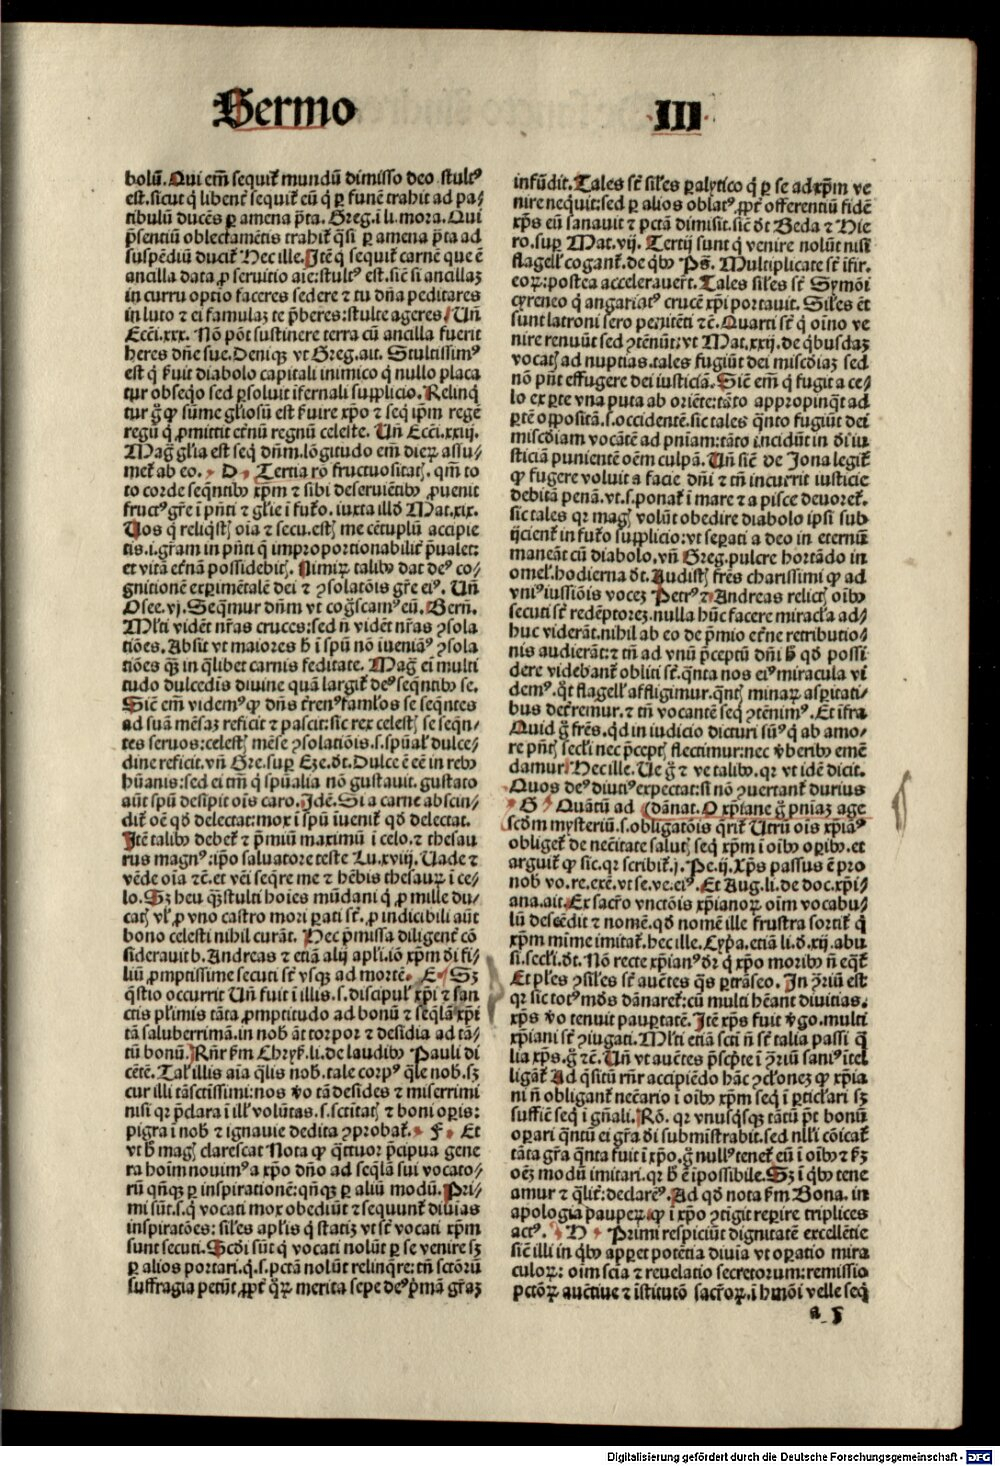 Sermo III
bolū. Qui em̄ sequit᷑ mundū dimisso deo stultꝰ
est. sicut q̇ libent᷑ sequit᷑ eū q̇ ꝑ funē trahit ad pa⸗
tibulū ducēs ꝑ amena p̄ta. Greg. i li. mora. Qui
p̄sentiū oblectamētis trahit᷑ q̄si ꝑ amena p̄ta ad
suspēdiū ducit᷑ Hec ille. Itē q̇ sequit᷑ carnē que ē
ancilla data ꝓ seruitio aīe: stultꝰ est. sic̄ si ancillaꝫ
in curru optio faceres sedere ⁊ tu dn̄a peditares
in luto ⁊ ei famulaꝫ te p̄beres: stulte ageres. Un̄
Ecci. xxx. Nō pōt sustinere terra cū ancilla fuerit
heres dn̄e sue. Deniqꝫ vt Greg. ait. Stultissimꝰ
est q̇ ẜuit diabolo capitali inimico q̇ nullo placa
tur obseq̇o sed ꝑsoluit īfernali supplicio. Relinq̇
tur g̊ ꝙ sūme gl̄iosū est ẜuire xp̄o ⁊ seq̇ ip̄m regē
regū q̇ ꝓmittit et̄nū regnū celeste. Un̄ Ecci. xxiij.
Maḡ gl̄ia est seq̇ dn̄m. lōgitudo em̄ dieꝝ assu⸗
met᷑ ab eo. D Tertia rō fructuositatꝭ. qm̄ to
to corde seq̄ntibꝰ xp̄m ⁊ sibi deseruiētibꝰ ꝓuenit
fructꝰ gr̄e ī pn̄ti ⁊ gl̄ie ī fut᷑o. iuxta illd̄ Mat. xix.
Uos q̇ reliq̇stꝭ oīa ⁊ secu. estꝭ me cētuplū accipie
tis. i. gr̄am in pn̄ti q̄ improportionabilit᷑ p̄ualet:
et vitā et̄nā possidebitꝭ. Nimiꝝ talibꝰ dat deꝰ co⸗
gnitionē experimētalē dei ⁊ ꝯsolatōis gr̄e eiꝰ. Un̄
Osee. vj. Seq̄mur dn̄m vt cog̊scamꝰ eū. Bern̄.
Ml̄ti vidēt nr̄as cruces: sed n̄ vidēt nr̄as ꝯsola
tiōes. Absit vt maiores h̄ ī spū nō īueniāꝰ ꝯsola
tiōes qꝫ in q̇libet carnis feditate. Maḡ ei multi
tudo dulcedīs diuine quā largit᷑ deꝰ seq̄ntibꝰ se.
Sic̄ em̄ videmꝰ ꝙ dn̄s t̄renꝰ famlos se seq̄ntes
ad suā mēsaꝫ reficit ⁊ pascit: sic rex celestꝭ se seq̄n⸗
tes seruos: celestꝭ mēse ꝯsolatiōis. s. spūal᷑ dulce⸗
dine reficit. vn̄ Gre. suꝑ Eze. dt. Dulce ē eē in rebꝰ
hūanis: sed ei tm̄ q̇ spūalia nō gustauit. gustato
aūt spū desipit oīs caro. Idē. Si a carne abscin⸗
dit᷑ oē qd̄ delectat: mox ī spū īuenit᷑ qd̄ delectat.
Itē talibꝰ debet᷑ ⁊ p̄miū maximū ī celo. ⁊ thesau
rus magnꝰ: ip̄o saluatore teste Lu. xviij. Uade ⁊
vēde oīa ⁊c. et vēi seq̄re me ⁊ hēbis thesauꝝ ī ce⸗
lo. Sꝫ heu q̄ꝫ stulti hoīes mūdani q̇ ꝓ mille du⸗
catꝭ vl̄ ꝓ vno castro mori ꝑati st᷑. ꝓ indicibili aūt
bono celesti nihil curāt. Hec p̄missa diligent᷑ cō
siderauit b. Andreas ⁊ etiā alij apl̄i. iō xp̄m di fi⸗
liū ꝓmptissime secuti st᷑ vsqꝫ ad mortē. E Sꝫ
q̄stio occurrit Un̄ fuit ī illis. s. discipul᷑ xp̄i ⁊ san
ctis pl̄imis tāta ꝓmptitudo ad bonū ⁊ seq̄lā xp̄i
tā saluberrimā. in nob̄ āt torpor ⁊ desidia ad tā⸗
tū bonū. Rn̄r ẜm Chrys. li. de laudibꝰ Pauli di
cētē. Tal᷑ illis aīa q̄lis nob̄. tale corpꝰ q̄le nob̄. sꝫ
cur illi tā sctissimi: nos v̊o tā desides ⁊ miserrimi
nisi qꝛ p̄clara ī ill᷑ volūtas. s. sctitatꝭ ⁊ boni oꝑis:
pigra ī nob̄ ⁊ ignauie dedita ꝯprobat᷑. F Et
vt h̄ magꝭ clarescat Nota ꝙ q̇ttuoꝛ p̄cipua gene
ra hoīm nouimꝰ a xp̄o dn̄o ad seq̄lā sui vocato⸗
rū qn̄qꝫ ꝑ inspirationē: qn̄qꝫ ꝑ aliū modū. Pri⸗
mi sūt. s. q̇ vocati mox obediūt ⁊ sequunt᷑ diuīas
inspiratōes: siles apl̄is q̇ statiꝫ vt st᷑ vocati xp̄m
sunt secuti. Scdi sūt q̇ vocati nolūt ꝑ se venire sꝫ
ꝑ alios portari. q̇. s. pctā nolūt relinq̄re: tn̄ sctōrū
suffragia petūt, ꝓpt᷑ q̊ꝝ merita sepe deꝰ p̄mā gr̄aꝫ
infūdit. Tales st᷑ siles ꝑalytico q̇ ꝑ se ad xp̄m ve
nire nequit: sed ꝑ alios oblatꝰ, ꝓpt᷑ offerentiū fidē
xp̄s eū sanauit ⁊ pctā dimisit. sic̄ dt Beda ⁊ Hie
ro. suꝑ Mat. vij. Tertij sunt q̇ venire nolūt nisi
flagell᷑ cogant᷑. de q̇bꝰ Ps̄. Multiplicate st᷑ īfir.
eoꝝ: postea accelerauert̄. Tales siles st᷑ Symōi
cyreneo q̇ angariatꝰ crucē xp̄i portauit. Siles ēt
sunt latroni sero penitēti ⁊c. Quarti st᷑ q̇ oīno ve
nire renuūt sed ꝯtēnūt: vt Mat. xxij. de q̇busdaꝫ
vocatꝭ ad nuptias. tales fugiūt dei miscdiaꝫ sed
nō pn̄t effugere dei iusticiā. Sic̄ em̄ q̇ fugit a ce⸗
lo ex ꝑte vna puta ab oriēte: tāto appropinq̄t ad
ꝑtē oppositā. s. occidentē. sic tales q̄nto fugiūt dei
miscdiam vocātē ad pn̄iam: tāto incidūt in di iu
sticiam punientē oēm culpā. Un̄ sic̄ de Jona legit᷑
ꝙ fugere voluit a facie dn̄i ⁊ tn̄ incurrit iusticie
debitā penā. vt. s. ponat᷑ ī mare ⁊ a pisce deuoret᷑.
sic tales qꝛ magꝭ volūt obedire diabolo ipsi sub
ijcient᷑ in fut᷑o supplicio: vt seꝑati a deo in eternū
maneāt cū diabolo. vn̄ Greg. pulcre hortādo in
omel᷑. hodierna dt. Audistꝭ frēs charissimi ꝙ ad
vniꝰ iussiōis voceꝫ Petrꝰ ⁊ Andreas relictꝭ oībꝰ
secuti st᷑ redēptoreꝫ. nulla hūc facere miracl̄a ad⸗
huc viderāt. nihil ab eo de p̄mio et̄ne retributio⸗
nis audierāt: ⁊ tn̄ ad vnū p̄ceptū dn̄i h̄ qd̄ possi
dere videbant᷑ obliti st᷑. q̄nta nos eiꝰ miracula vi
demꝰ. q̄t flagell᷑ affligimur. q̄ntꝭ minaꝝ asꝑitati⸗
bus det᷑remur. ⁊ tn̄ vocantē seq̇ ꝯtēnimꝰ. Et īfra
Quid g̊ frēs. qd̄ in iudicio dicturi sūꝰ q̇ ab amo⸗
re pn̄tꝭ secl̄i nec p̄ceptꝭ flectimur: nec v̄beribꝰ emē
damur Hec ille. Ue g̊ ⁊ ve talibꝰ. qꝛ vt idē dicit.
Quos deꝰ diutiꝰ expectat: si nō ꝯuertant᷑ durius
dānat. G Quātū ad O xp̄iane g̊ pn̄iaꝫ age
scd̄m mysteriū. s. obligatōis q̄rit᷑ Utrū oīs xp̄iāꝰ
obliget᷑ de nec̄itate salutꝭ seq̇ xp̄m ī oībꝰ oꝑibꝰ. et
arguit᷑ ꝙ sic. qꝛ scribit᷑. j. Pe. ij. Xp̄s passus ē pro
nob̄ vo. re. exē. vt se. ve. eiꝰ. Et Aug. li. de doc. xp̄i⸗
ana. ait. Ex sacr̄o vnctōis xp̄ianoꝝ oīm vocabu⸗
lū descēdit ⁊ nomē. qd̄ nomē ille frustra sortit᷑ q̇
xp̄m mīme imitat᷑. hec ille. Cyp̄a. etiā li. d. xij. abu
si. secl̄i. dt. Nō recte xp̄ianꝰ dr̄ q̇ xp̄o moribꝰ n̄ eq̄t᷑
Et pl̄es ꝯsiles st᷑ auc̄tes q̄s ꝑtrāseo. In ꝯ̄riū est
qꝛ sic totꝰ mūdꝰ dānaret᷑: cū multi hēant diuitias.
xp̄s v̊o tenuit pauꝑtatē. Itē xp̄s fuit v̊go. multi
xp̄iani st᷑ ꝯiugati. Ml̄ti etiā scti n̄ st᷑ talia passi q̄
lia xp̄s. g̊ ⁊c. Un̄ vt auc̄tes p̄scp̄te ī ꝯ̄riū saniꝰ ītel
ligant᷑ Ad q̄sitū rn̄r accipiēdo hāc ꝯclōneꝫ ꝙ xp̄ia
ni n̄ obligant᷑ nec̄ario ī oībꝰ xp̄m seq̇ ī ꝑticl̄ari sꝫ
suffic̄ seq̇ ī gn̄ali. Rō. qꝛ vnusq̇sqꝫ tātū pōt bonū
oꝑari q̄ntū ei gr̄a di submīstrabit. sed nll̄i cōicat᷑
tāta gr̄a q̄nta fuit ī xp̄o. g̊ nullꝰ tenet᷑ eū ī oībꝰ ⁊ ẜꝫ
oēꝫ modū imitari. qꝛ h̄ ē īpossibile. Sꝫ ī q̇bꝰ tene
amur ⁊ q̄lit᷑: declareꝰ. Ad qd̄ nota ẜm Bona. in
apologia pauꝑeꝝ ꝙ ī xp̄o ꝯtigit reꝑire triplices
actꝰ. H Primi respiciūt dignitatē excellētie
sic̄ illi in q̇bꝰ apꝑet potētia diuīa vt oꝑatio mira
culoꝝ: oīm scīa ⁊ reuelatio secretorum: remissio
pctōꝝ auct̄iue ⁊ īstitutō sacr̄oꝝ. ī hmōi velle seq̇
a 5
Digitalisierung gefördert durch die Deutsche Forschungsgemeinschaft - DFG